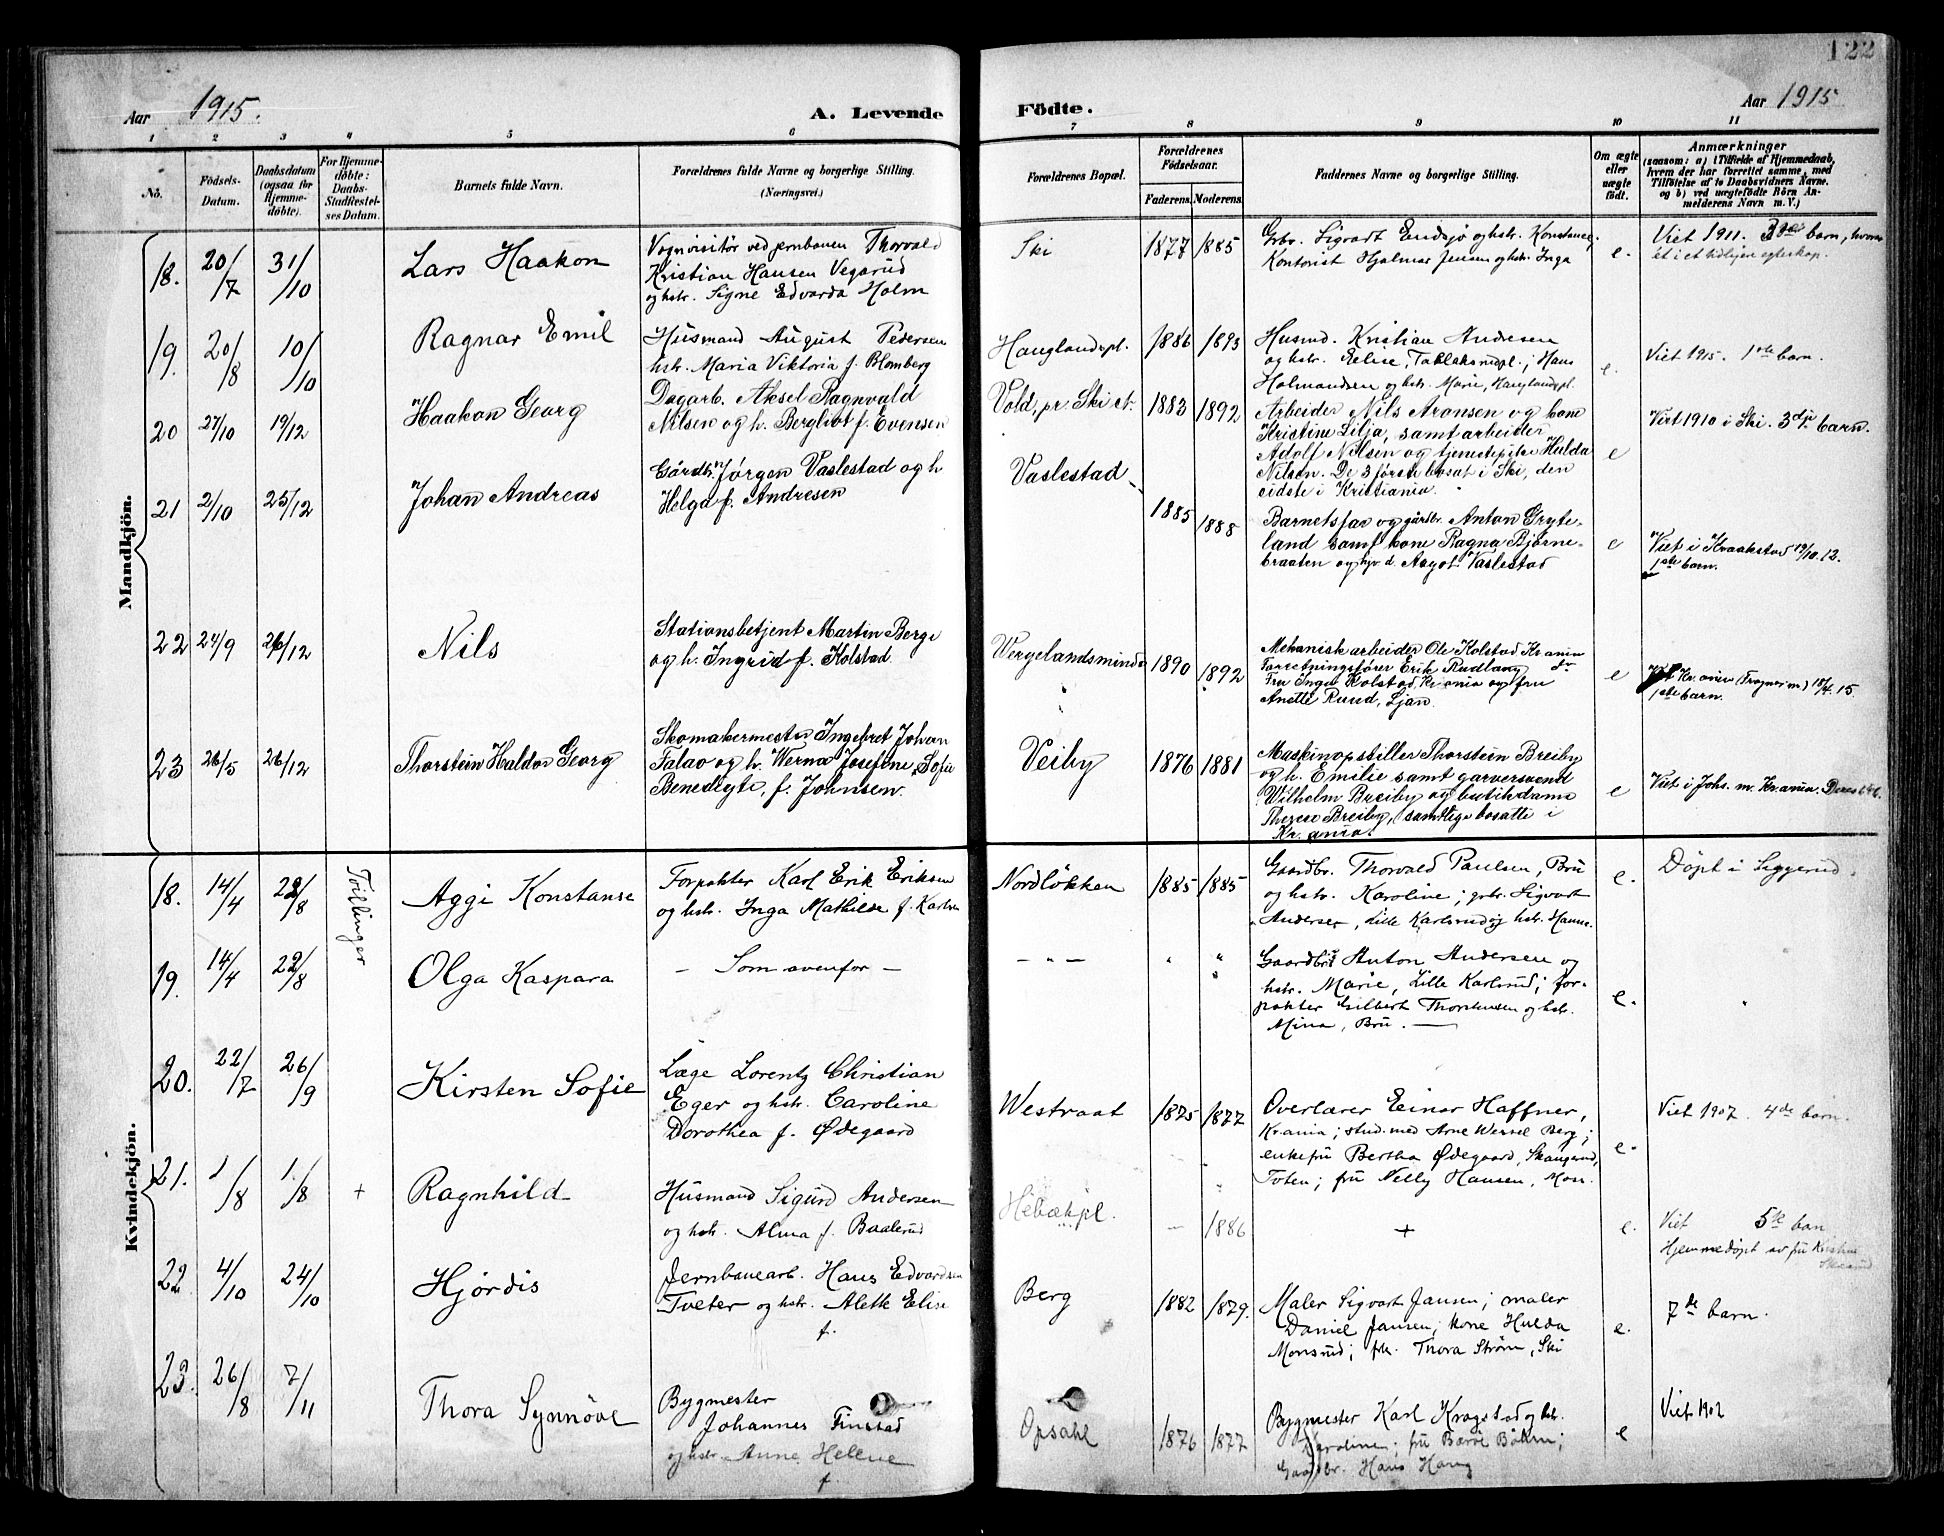 122
Aar 1915. A. Levende Födte. Aar 1915
1 2 3 4 5 6 7 8 9 10 11
No.
Födsels-Datum.
Daabsdatum (ogsaa for Hjemmedöbte).
For Hjemmedöbte: Daabs-Stadfæstelses Datum.
Barnets fulde Navn.
Forældrenes fulde Navne og borgerlige Stilling.
(Næringsvei.)
Forældrenes Bopæl.
Forældrenes Födselsaar.
Faderens. Moderens.
Faddernes Navne og borgerlige Stilling.
Om ægte eller uægte födt.
Anmærkninger
(saasom: a) i Tilfælde af Hjemmedaab,
hvem der har forrettet samme, med
Tilföielse af to Daabsvidners Navne,
og b) ved uægtefödte Börn Anmelderens Navn m. V.)
Mandkjön.
18. 20/7 31/10 Lars Haakon
Vognvisitör ved jernbanen Thorvald
Kristian Hansen Vegarud
og hstr. Signe Edvarda Holm
Ski 1877 1885
Grbr. Sigvart Endsjø og hstr. Konstance;
Kontorist Hjalmar Jensen og hstr. Inga
e.
Viet 1911. 3die barn,
19. 20/8 10/10 Ragnar Emil
Husmand August Pedersen
hstr. Maria Viktoria f. Blomberg
Hauglandspl. 1886 1893
Husmd. Kristian Andersen
og hstr. Eelise, Taklaksrudpl.; Hans
Holmandsen og hstr. Marie, Hauglandspl.
e.
Viet 1915. 1ste barn.
20 27/10 19/12 Haakon Georg
Dagarb. Aksel Ragnvald
Nilsen og h. Bergliot f. Evensen
Vold, pr. Ski st. 1883 1892
Arbeider Nils Aronsen og kone
Kristine Lilja, samt arbeider
Adolf Nilsen og tjenestepike Hulda
Nilsen. De 3 første bosat i Ski, den
sidste i Kristiania.
e
Viet 1910 i Ski. 3die barn.
21 2/10 25/12 Johan Andreas
Gårdbr. Jørgen Vaslestad og h
Helga f. Andresen
Vaslestad 1885 1888
Barnets far og gårdbr. Anton Gryteland
samt kone Ragna Bjørnebraaten
og Aagot Vaslestad
e
Viet i Kraakstad 19/10.12.
1ste barn.
22 24/9 26/12 Nils
Stationsbetjent Martin Berge
og h. Ingrid f. Kolstad
Vergelandsminde 1890 1892
Mekanisk arbeider Ole Kolstad Kr.ania
Forretningsfører Erik Rudlang do
Fru Inga Kolstad, Kr.ania og fru
Anette Ruud, Ljan.
e
Viet Kr.ania (Frogner m.) 18/4.15.
1ste barn.
23 26/5 26/12 Thorstein Haldor Georg
Skomakermester Ingebret Johan
Falao og h. Werna Josefine Sofie
Benedigte, f. Johnsen.
Veiby 1876 1881
Maskinopstiller Thorstein Breiby
og h. Emilie samt garversvend
Wilhelm Breiby og butikdame
Therese Breiby, samtlige bosatte i
Kr.ania.
e
Viet i Johs. m. Kr.ania.
Kvindekjön.
18. 14/4 22/8 Trillinger Aggi Konstanse
Forpakter Karl Erik Eriksen
og hstr. Inga Mathilde f. Karlsen
Nordløkken 1885 1885
Gaardbr. Thorvald Paulsen, Bru
og hstr. Karoline; grbr. Sigvart
Andersen, Lille Karlsrud og hstr. Hanna.
e.
Døpt i Siggerud.
19. 14/4 22/8 Olga Kaspara
— Som ovenfor —
— " — " "
Gaardbr. Anton Andersen og
hstr. Marie, Lille Karlsrud; forpakter
Gilbert Thorstensen og hstr.
Mina, Bru. —
e.
"
20. 22/7 26/9 Kirsten Sofie
Læge Lorentz Christian
Eger og hstr. Caroline
Dorothea f. Ødegaard
Westraat 1875 1877
Overlærer Einar Haffner,
Kr.ania; stud. med Arne Wessel Berg;
enkefru Bertha Ødegaard, Skaugerud,
Toten; fru Nelly Hansen, Moss.
e.
Viet 1907. 4de barn.
21. 1/8 1/8 + Ragnhild
Husmand Sigurd Andersen
og hstr. Alma f. Baalerud
Hebækpl. — 1886
+
e.
Viet 5te barn
Hjemmedøpt av fru Kristine
22 4/10 24/10 Hjördis
Jernbanearb. Hans Edvardsen
Tveter og hstr. Alette Elise
f.
Berg 1882 1879.
Maler Sigvart Jansen; maler
Daniel Jansen; kone Hulda
Monsrud; frk. Thora Strøm, Ski
e.
7de barn.
23. 26/8 7/11 Thora Synnöve
Bygmester
Johannes Finstad
og hstr. Anne Helene
f.
Opsahl 1876 1877
Bygmester Karl Kragstad og hstr.
Karoline; fru Bøhm;
Gaardbr. Hans Haug
e
Viet 1902